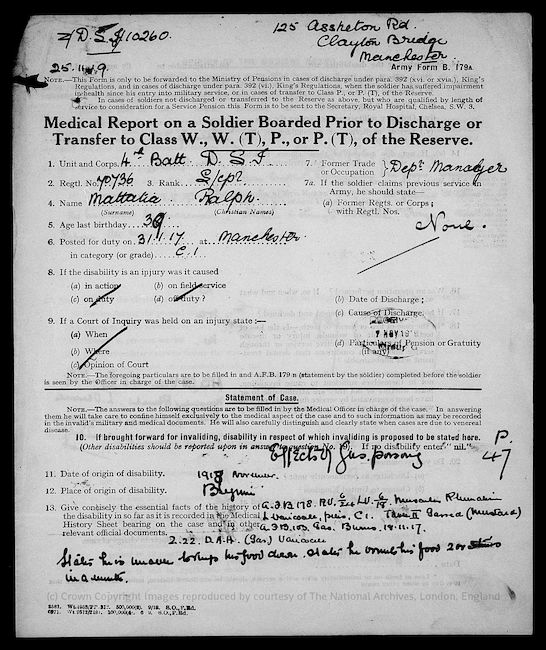 125 Assheton Rd.
Clayton Bridge
Manchester
D.S.I 10260.
25.11.19
Army Form B. 179A.
NOTE.—This Form is only to be forwarded to the Ministry of Pensions in cases of discharge under para. 392 (xvi. or xvia.), King's
Regulations, and in cases of discharge under para. 392 (vi.), King's Regulations, when the soldier has suffered impairment
in health since his entry into military service, or in cases of transfer to Class P., or P. (T), of the Reserve.
In cases of soldiers not discharged or transferred to the Reserve as above, but who are qualified by length of
service to consideration for a Service Pension this Form is to be sent to the Secretary, Royal Hospital, Chelsea, S.W. 3.
Medical Report on a Soldier Boarded Prior to Discharge or
Transfer to Class W., W. (T), P., or P. (T), of the Reserve.
1. Unit and Corps 4th Batt D.S.I
7. Former Trade or Occupation } Dept Manager
2. Regtl. No. 70736 3. Rank
7a. If the soldier claims previous service in
Army, he should state—
4. Name Mattalia Ralph.
(Surname) (Christian Names)
(a) Former Regts. or Corps;
with Regtl. Nos.
None.
5. Age last birthday 39
6. Posted for duty on 31.1.17 at Manchester
in category (or grade) C.1
8. If the disability is an injury was it caused
(a) in action (b) on field service
(c) on duty (d) off duty?
(b) Date of Discharge;
(c) Cause of Discharge.
9. If a Court of Inquiry was held on an injury state:—
(a) When
(b) Where
(c) Opinion of Court
(d) Particulars of Pension or Gratuity
(if any)
7 NOV 19
NOTE.—The foregoing particulars are to be filled in and A.F.B. 179 n (statement by the soldier) completed before the soldier
is seen by the Officer in charge of the case.
Statement of Case.
NOTE.—The answers to the following questions are to be filled in by the Medical Officer in charge of the case. In answering
them he will take care to confine himself exclusively to the medical aspect of the case and to such information as may be recorded
in the invalid's military and medical documents. He will also carefully distinguish and clearly state when cases are due to venereal
disease.
10. If brought forward for invaliding, disability in respect of which invaliding is proposed to be stated here.
(Other disabilities should be reported upon in answer to question No. 19). If no disability enter "nil."
P.
47
Effects of Gas poisoning
11. Date of origin of disability. 1918 November
12. Place of origin of disability.
13. Give concisely the essential facts of the history of
the disability in so far as it is recorded in the Medical
History Sheet bearing on the case and in other
relevant official documents.
A.F.B 178. R.V. 6/24 L.V. 6/18. Muscular Rheumatism
Varicocele, C1. Gassed (Mustard)
A.F.B.103. Gas. Burns. 18.11.17.
Z.22. D.A.H. (Gas) Varicocele
States he is unable to keep his food down. States he vomits his food 2 or
in a month.
(c) Crown Copyright Images reproduced by courtesy of The National Archives, London, England